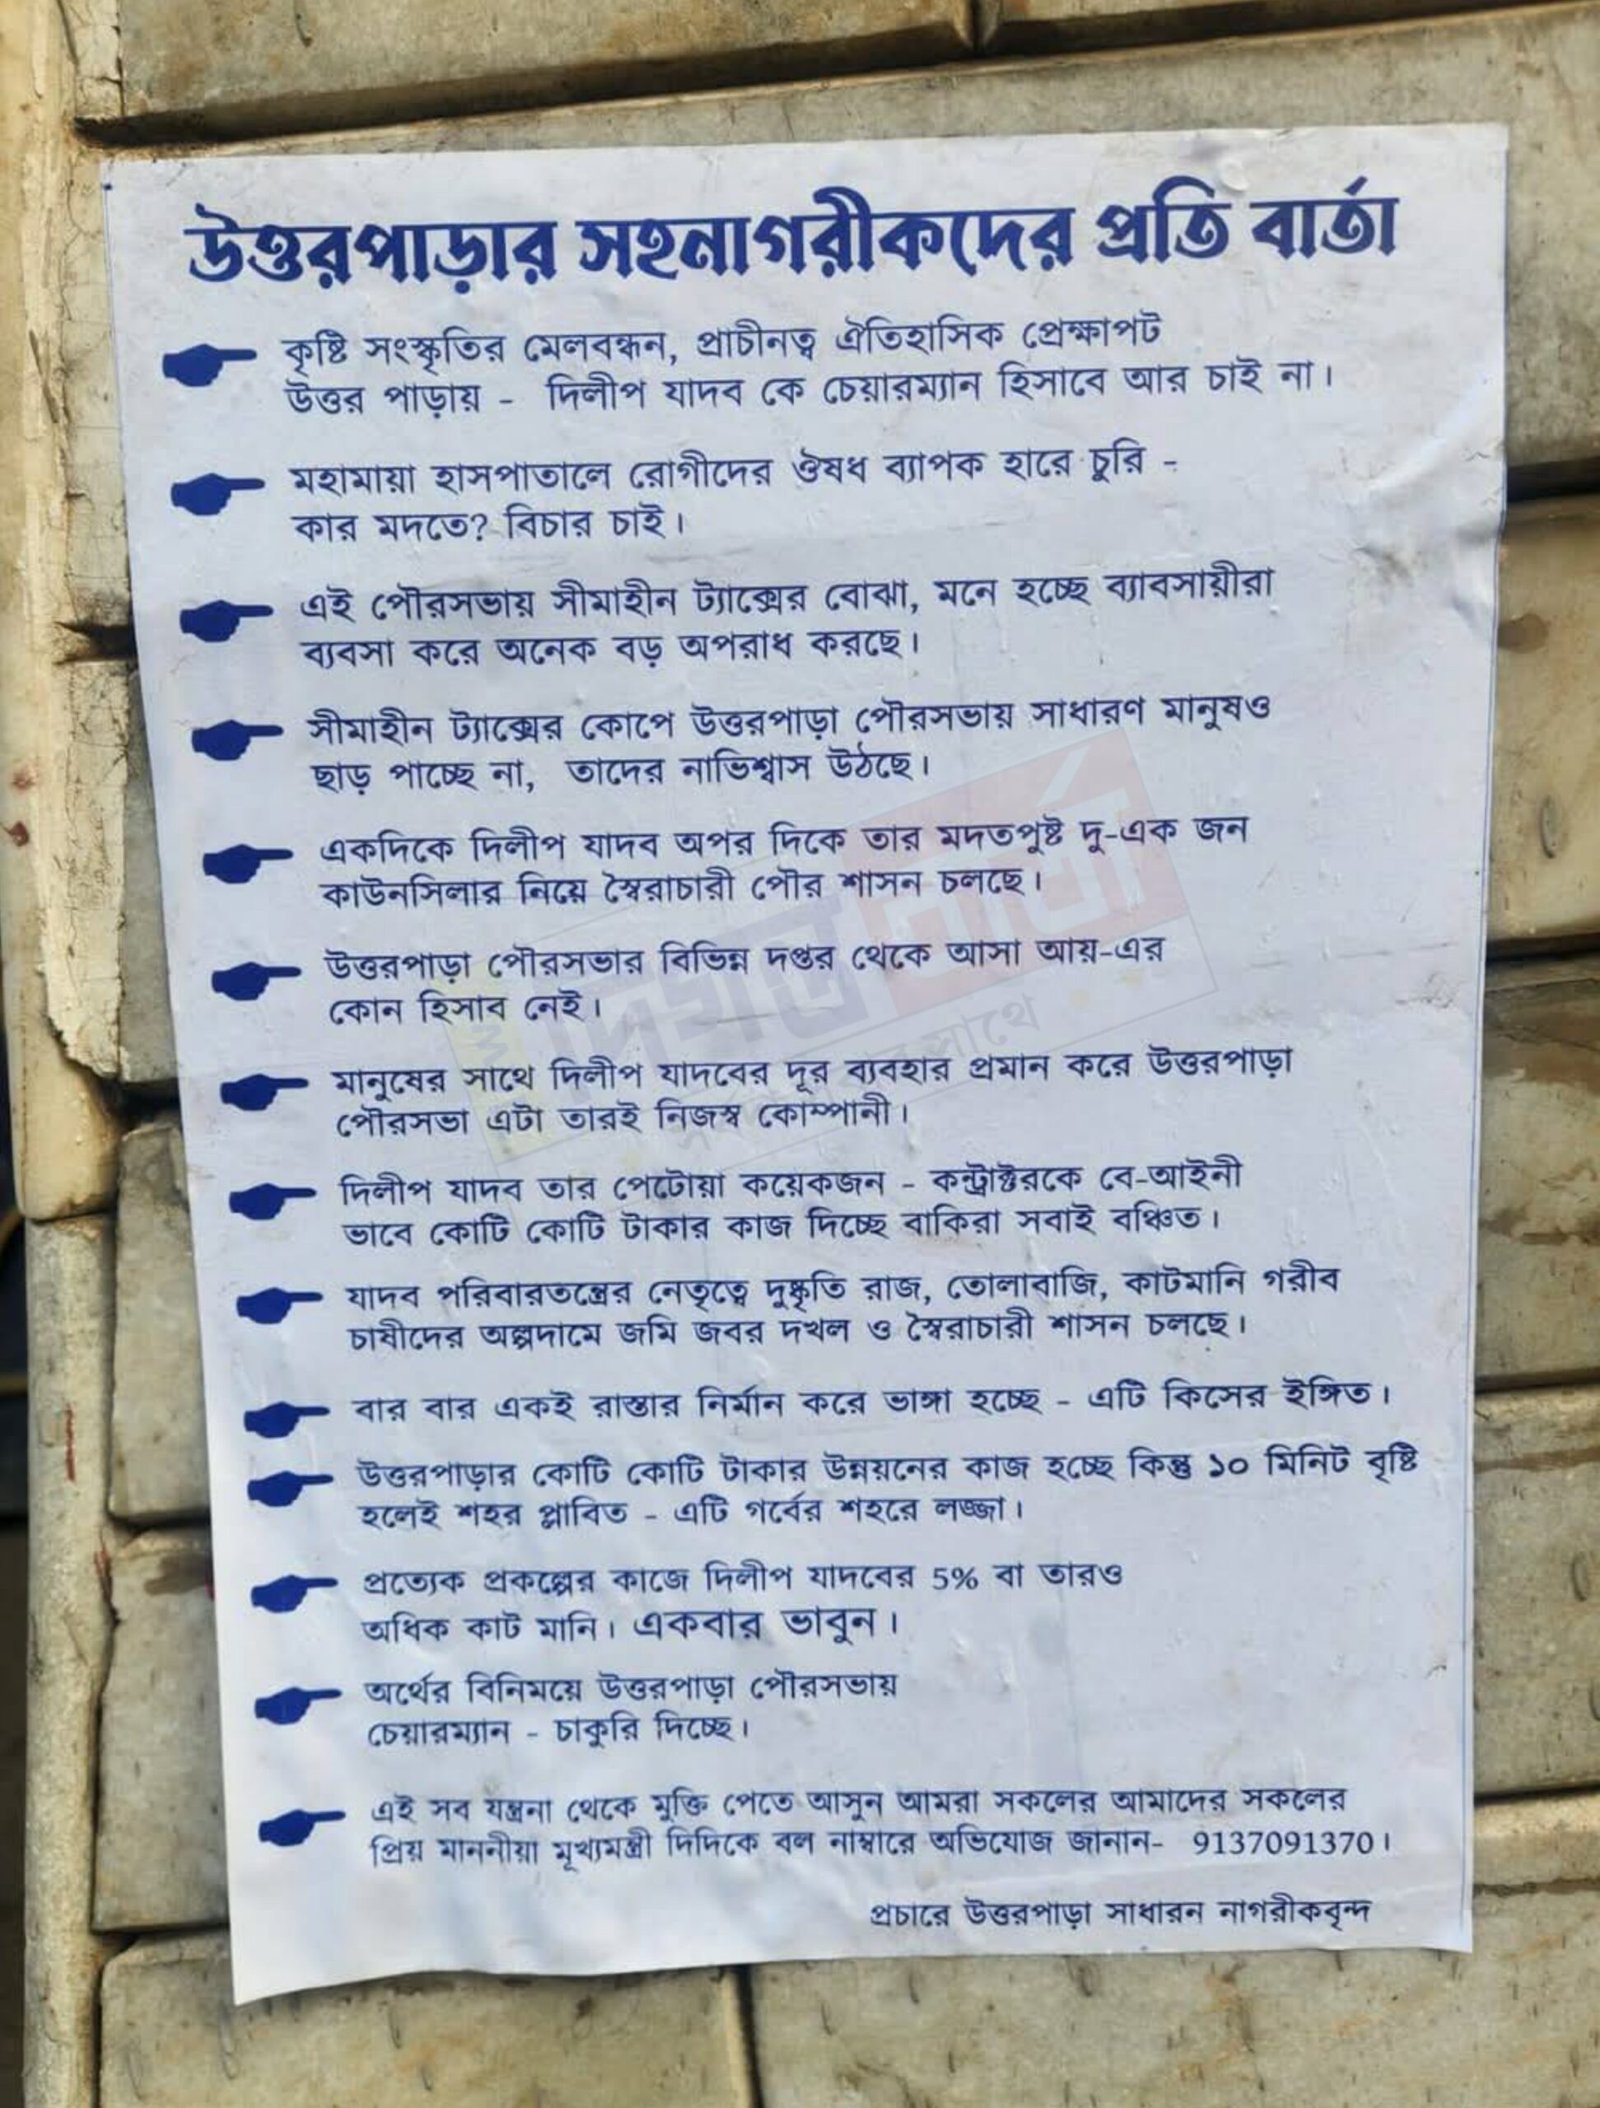 উত্তরপাড়ার সহনাগরীকদের প্রতি বার্তা
কৃষ্টি সংস্কৃতির মেলবন্ধন, প্রাচীনত্ব ঐতিহাসিক প্রেক্ষাপট
উত্তর পাড়ায় - দিলীপ যাদব কে চেয়ারম্যান হিসাবে আর চাই না।
মহামায়া হাসপাতালে রোগীদের ঔষধ ব্যাপক হারে চুরি -
কার মদতে? বিচার চাই।
এই পৌরসভায় সীমাহীন ট্যাক্সের বোঝা, মনে হচ্ছে ব্যাবসায়ীরা
ব্যবসা করে অনেক বড় অপরাধ করছে।
সীমাহীন ট্যাক্সের কোপে উত্তরপাড়া পৌরসভায় সাধারণ মানুষও
ছাড় পাচ্ছে না, তাদের নাভিশ্বাস উঠছে।
একদিকে দিলীপ যাদব অপর দিকে তার মদতপুষ্ট দু-এক জন
কাউনসিলার নিয়ে স্বৈরাচারী পৌর শাসন চলছে।
উত্তরপাড়া পৌরসভার বিভিন্ন দপ্তর থেকে আসা আয়-এর
কোন হিসাব নেই।
মানুষের সাথে দিলীপ যাদবের দূর ব্যবহার প্রমান করে উত্তরপাড়া
পৌরসভা এটা তারই নিজস্ব কোম্পানী।
দিলীপ যাদব তার পেটোয়া কয়েকজন - কন্ট্রাক্টরকে বে-আইনী
ভাবে কোটি কোটি টাকার কাজ দিচ্ছে বাকিরা সবাই বঞ্চিত।
যাদব পরিবারতন্ত্রের নেতৃত্বে দুষ্কৃতি রাজ, তোলাবাজি, কাটমানি গরীব
চাষীদের অল্পদামে জমি জবর দখল ও স্বৈরাচারী শাসন চলছে।
বার বার একই রাস্তার নির্মান করে ভাঙ্গা হচ্ছে - এটি কিসের ইঙ্গিত।
উত্তরপাড়ার কোটি কোটি টাকার উন্নয়নের কাজ হচ্ছে কিন্তু ১০ মিনিট বৃষ্টি
হলেই শহর প্লাবিত - এটি গর্বের শহরে লজ্জা।
প্রত্যেক প্রকল্পের কাজে দিলীপ যাদবের 5% বা তারও
অধিক কাট মানি। একবার ভাবুন।
অর্থের বিনিময়ে উত্তরপাড়া পৌরসভায়
চেয়ারম্যান - চাকুরি দিচ্ছে।
এই সব যন্ত্রনা থেকে মুক্তি পেতে আসুন আমরা সকলের আমাদের সকলের
প্রিয় মাননীয়া মূখ্যমন্ত্রী দিদিকে বল নাম্বারে অভিযোজ জানান- 9137091370।
প্রচারে উত্তরপাড়া সাধারন নাগরীকবৃন্দ